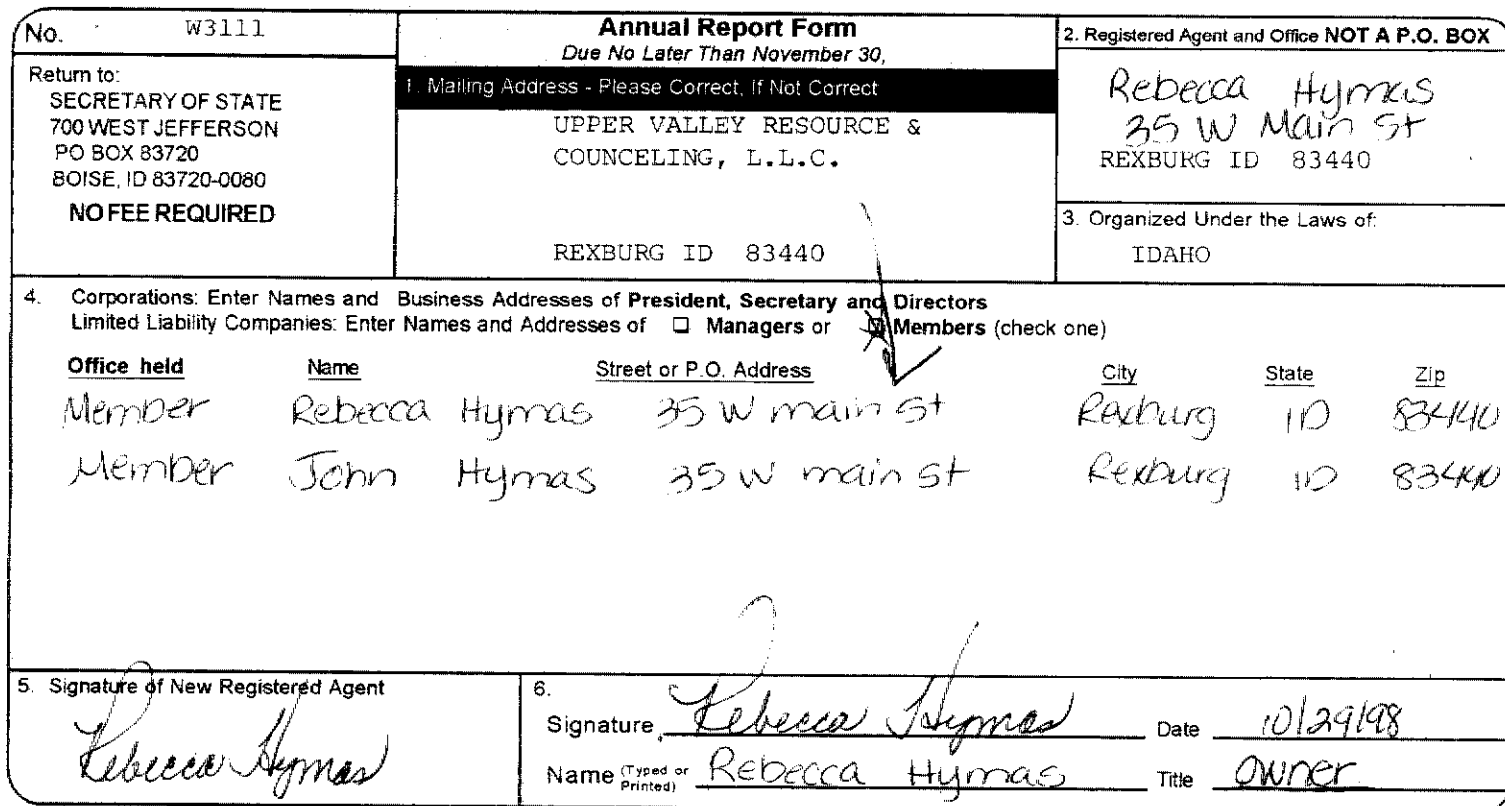 No. W3111
Return to:
SECRETARY OF STATE
700 WEST JEFFERSON
PO BOX 83720
BOISE, ID 83720-0080
NO FEE REQUIRED
Annual Report Form
Due No Later Than November 30,
1. Mailing Address - Please Correct, If Not Correct
UPPER VALLEY RESOURCE &
COUNCELING, L.L.C.
REXBURG ID 83440
2. Registered Agent and Office NOT A P.O. BOX
Rebecca Hymas
35 W Main St
REXBURG ID 83440
3. Organized Under the Laws of:
IDAHO
4. Corporations: Enter Names and Business Addresses of President, Secretary and Directors
Limited Liability Companies: Enter Names and Addresses of ☐ Managers or ☒ Members (check one)
Office held Name Street or P.O. Address City State Zip
Member Rebecca Hymas 35 W main st Rexburg ID 83440
Member John Hymas 35 W main st Rexburg ID 83440
5. Signature of New Registered Agent
Rebecca Hymas
6.
Signature Rebecca Hymas Date 10/29/98
Name (Typed or Printed) Rebecca Hymas Title Owner